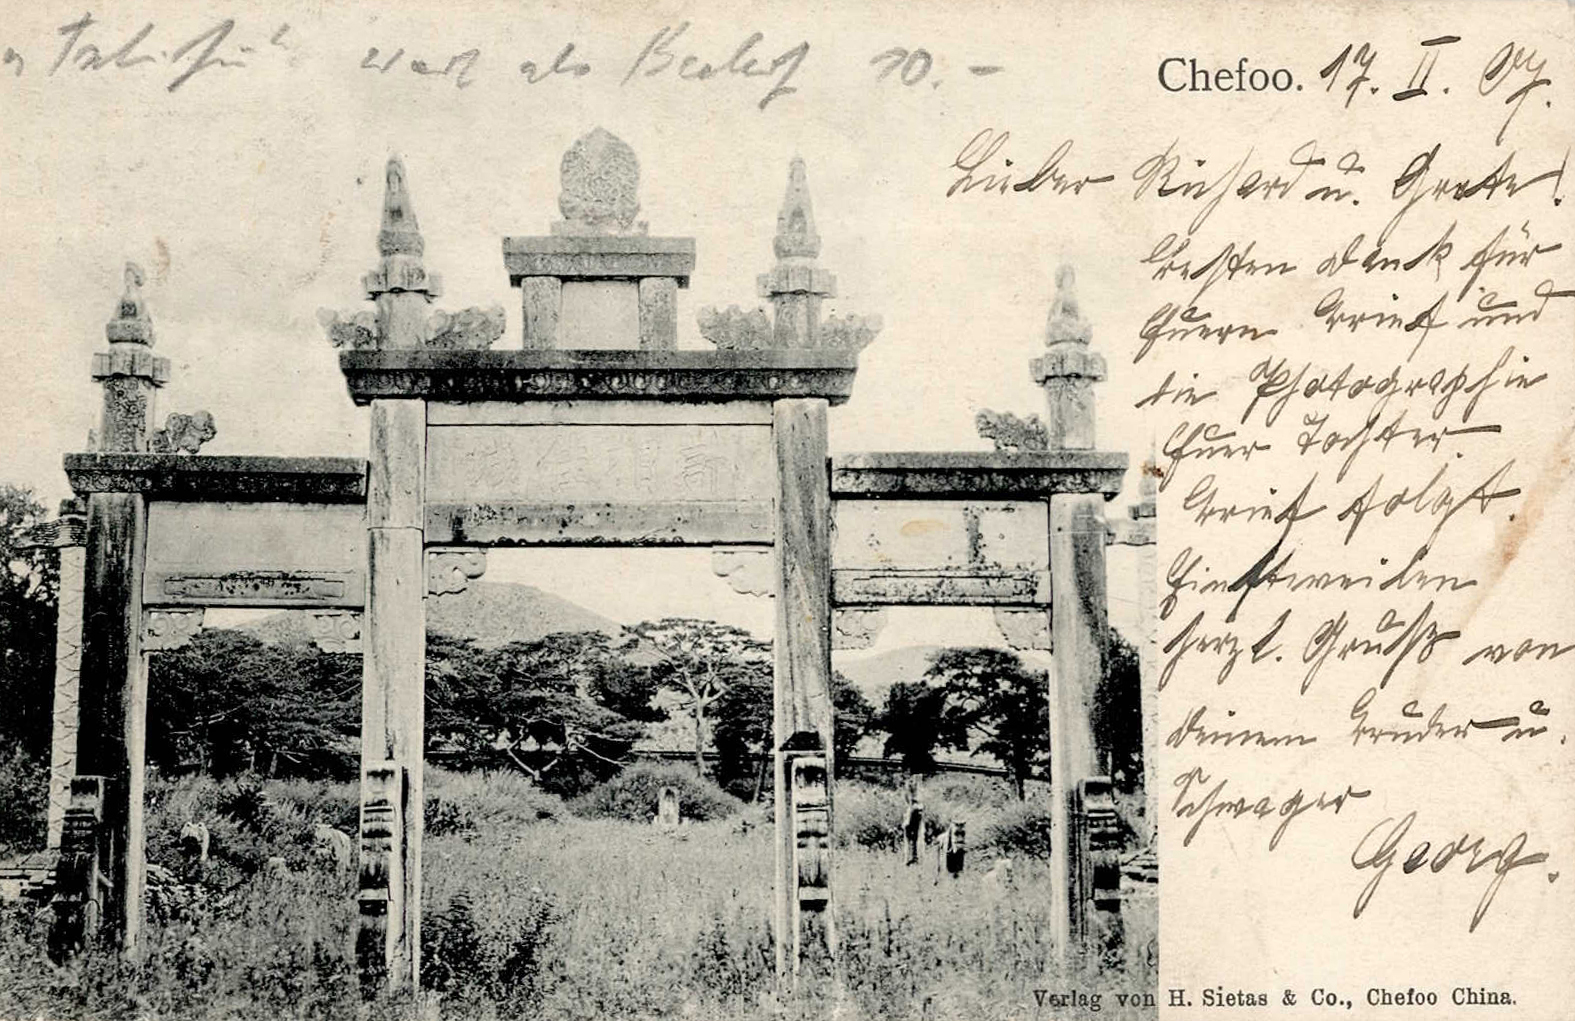 wert als Beleg 20.-
Chefoo. 17. II. 07.
Lieber Richard u. Grete!
besten Dank für
Euern Brief und
die Photographie
Euer Tochter.
Brief folgt.
Einstweilen
herzl. Gruß von
Deinem Bruder u.
Schwager
Georg.
Verlag von H. Sietas & Co., Chefoo China.